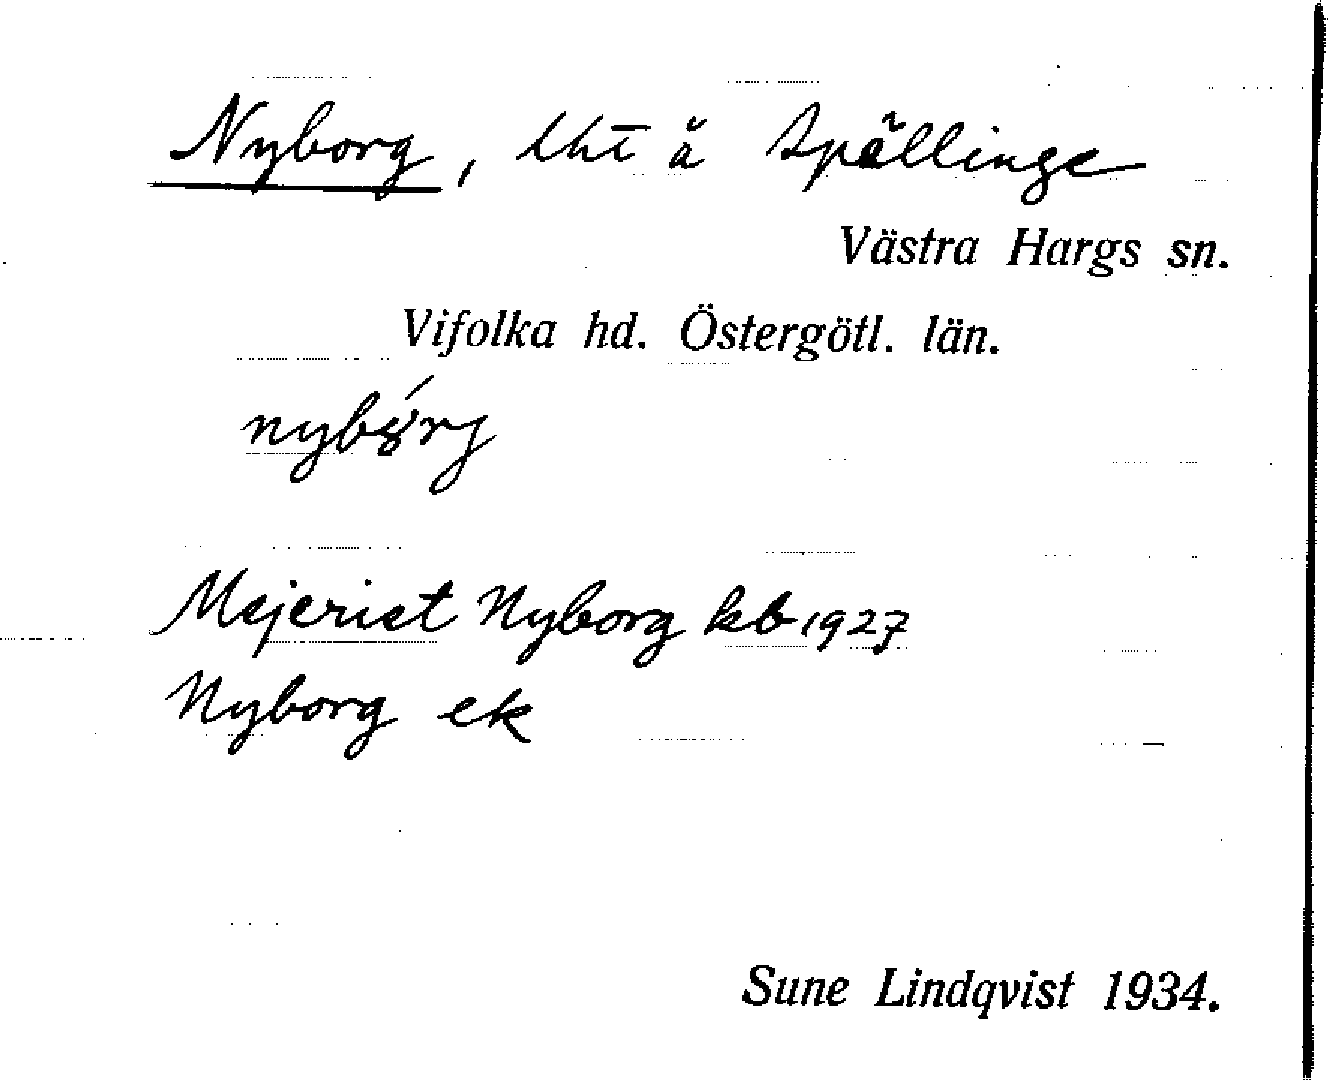 Nyborg, lht å Spällinge
Västra Hargs sn.
Vifolka hd. Östergötl. län.
Mejeriet Nyborg kb 1927
Nyborg ek
Sune Lindqvist 1934.